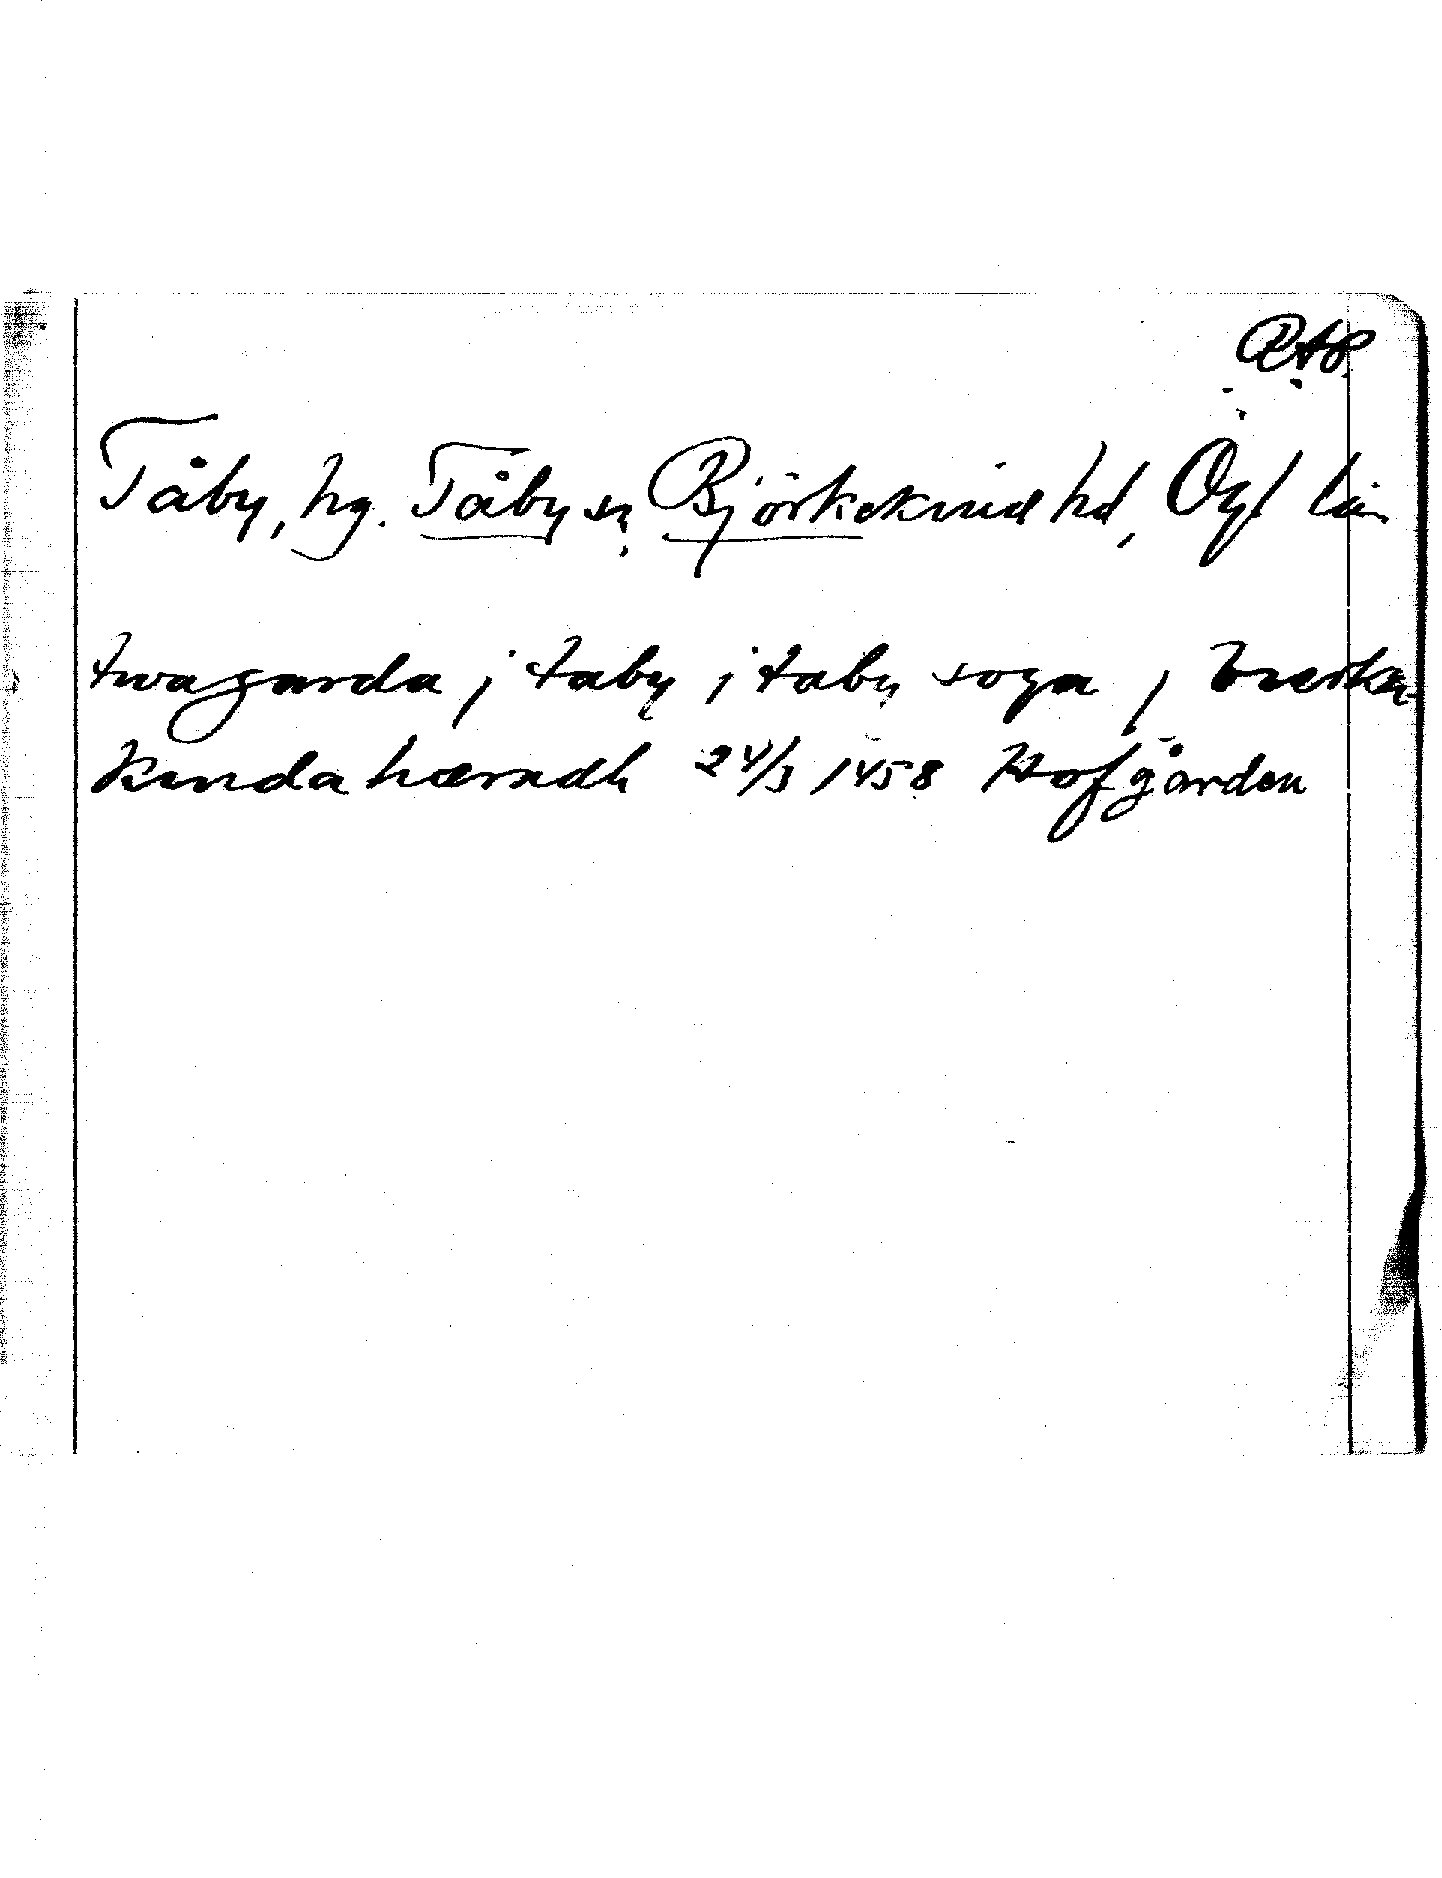 RAP.
Tåby, hg. Tåby sn, Björkekind hd, Ögl län
twa garda j taby j taby sogn j
kinda hæradh 24/3 1458 Hofgården